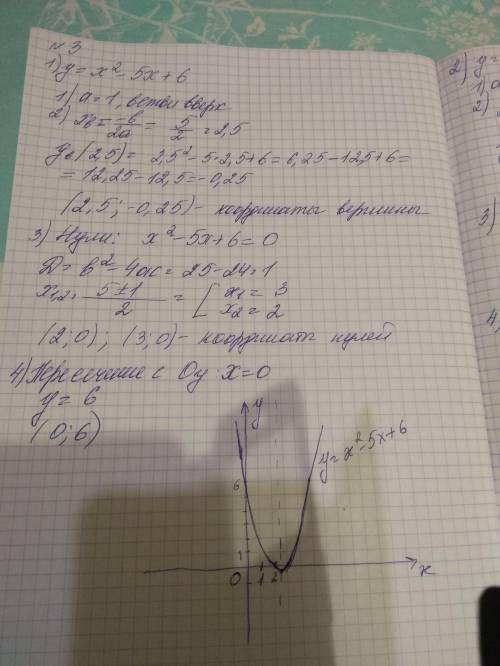 №3
1) y = x² - 5x + 6
1) a = 1, ветви вверх
2) xв = -b/2a = 5/2 = 2,5
yв(2,5) = 2,5² - 5·2,5 + 6 = 6,25 - 12,5 + 6 =
= 12,25 - 12,5 = -0,25
(2,5; -0,25) - координаты вершины
3) Нули: x² - 5x + 6 = 0
D = b² - 4ac = 25 - 24 = 1
x1,2 = 5±1/2 = [ x1 = 3
x2 = 2
(2;0); (3;0) - координаты нулей
4) Пересечение с Oy: x = 0
y = 6
(0;6)
y
y = x² - 5x + 6
6
1
0 1 2 x
2) y =
1) a
2)
3)
4)